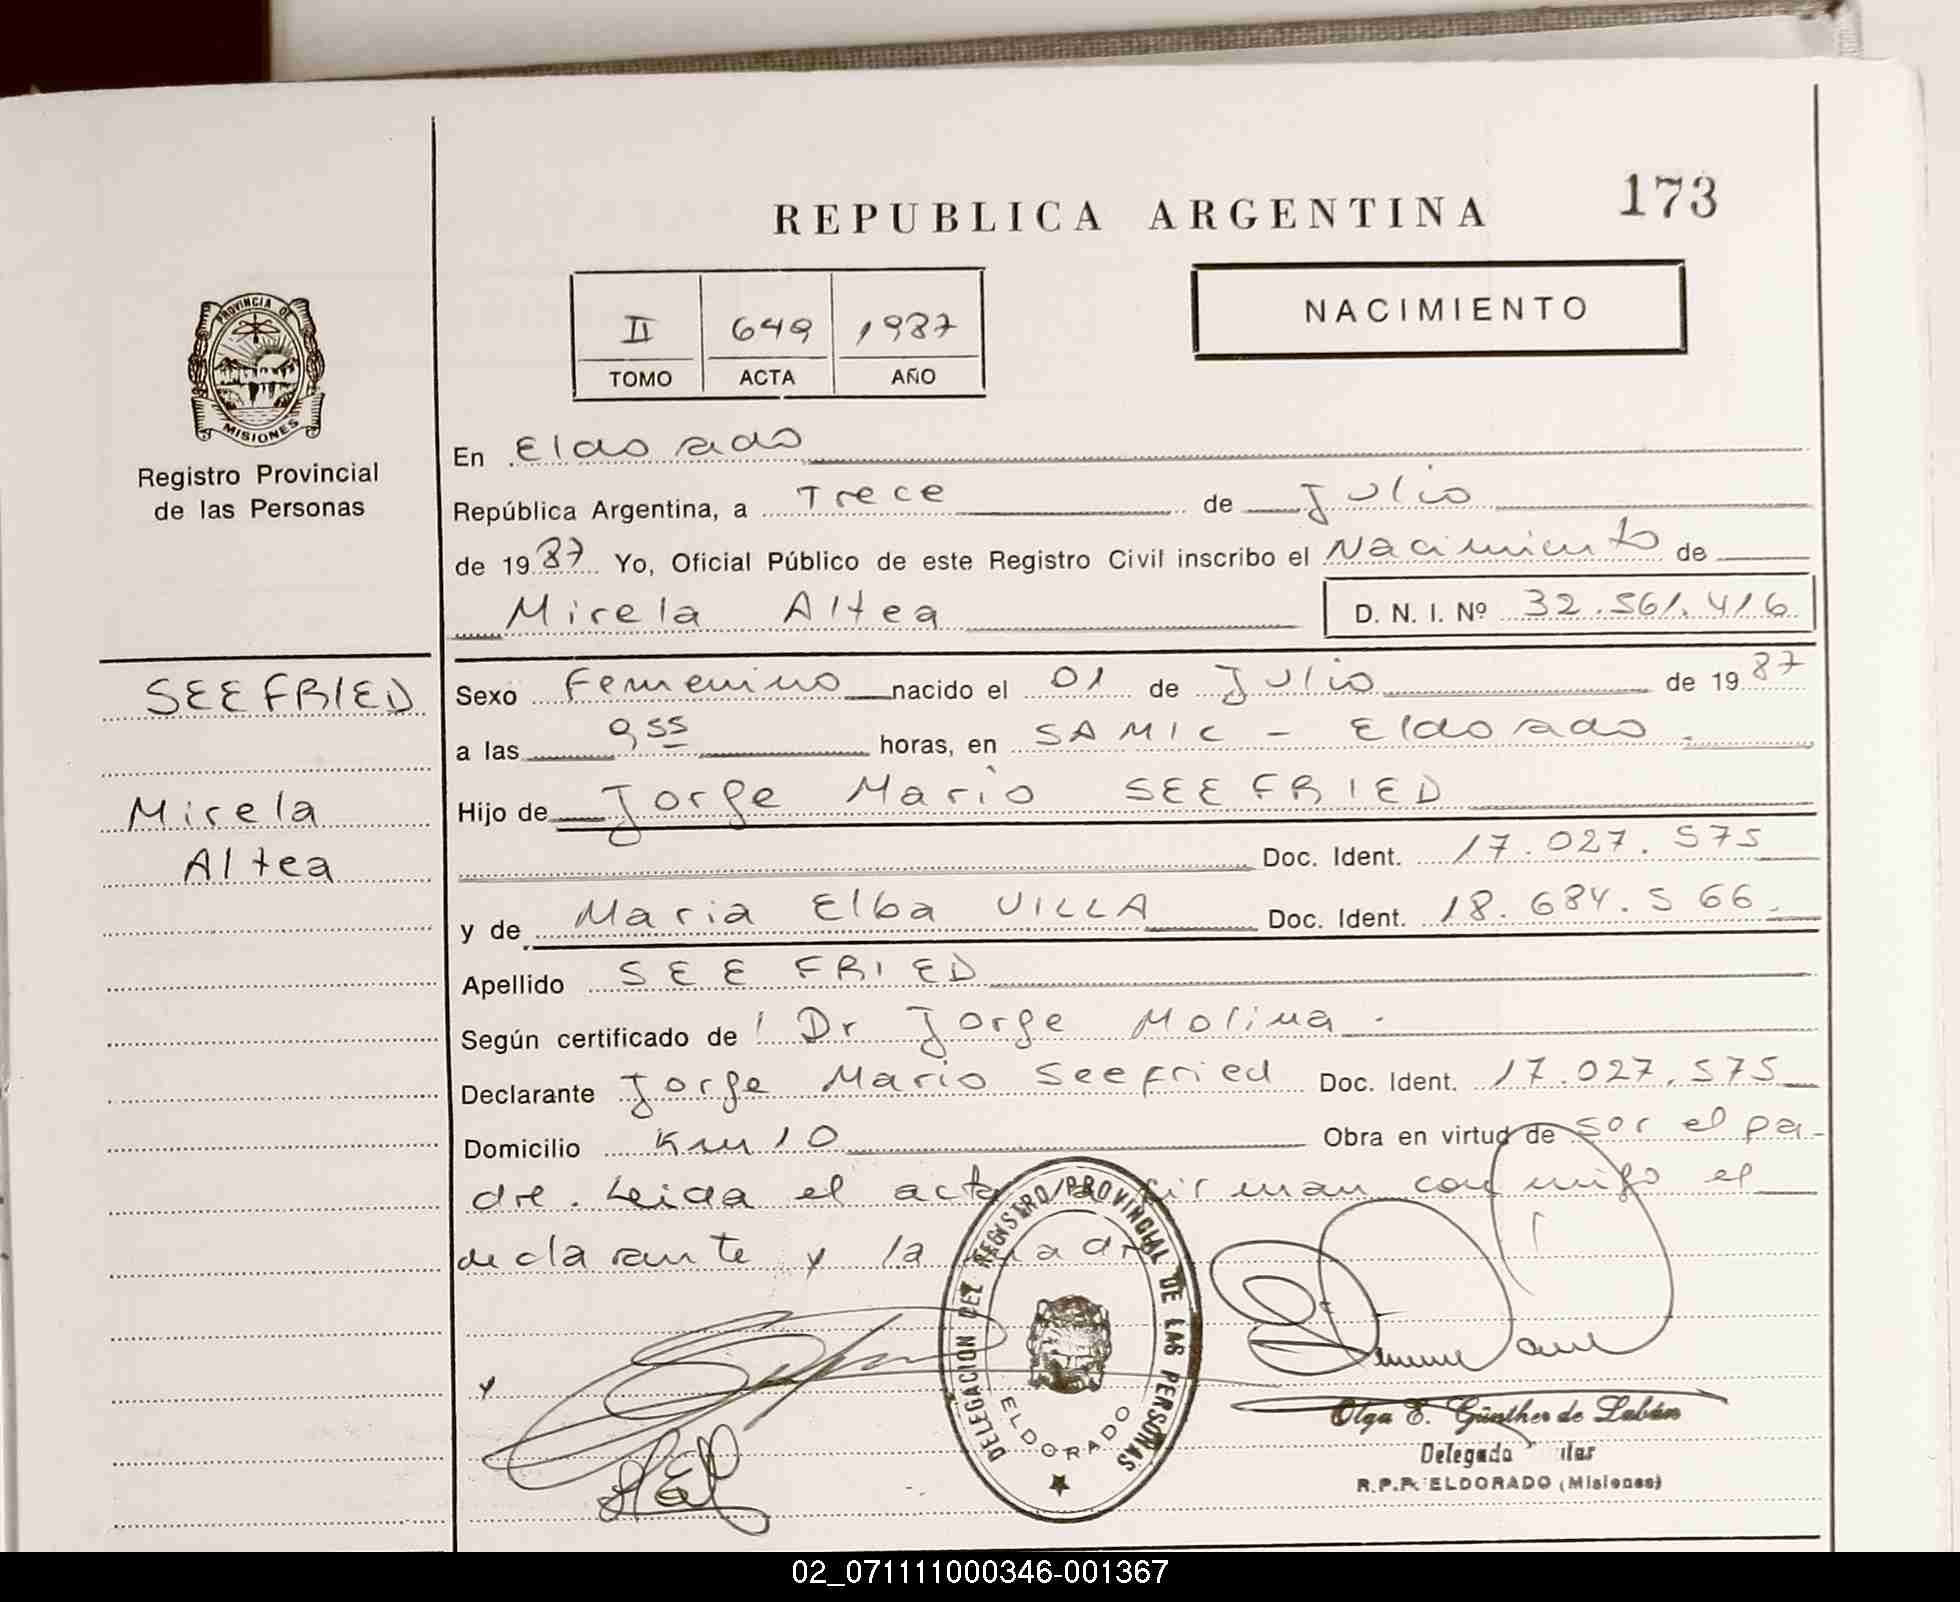 173
REPUBLICA ARGENTINA
NACIMIENTO
II 649 1987
TOMO ACTA AÑO
PROVINCIA DE
MISIONES
Registro Provincial
de las Personas
En Eldorado
República Argentina, a Trece de Julio
de 1987 Yo, Oficial Público de este Registro Civil inscribo el Nacimiento de
Mirela Altea D. N. I. Nº 32.561.416
SEEFRIED
Mirela
Altea
Sexo Femenino nacido el 01 de Julio de 1987
a las 9 55 horas, en SAMIC - Eldorado.
Hijo de Jorge Mario SEEFRIED
Doc. Ident. 17.027.575
y de Maria Elba VILLA Doc. Ident. 18.684.566.
Apellido SEEFRIED
Según certificado de Dr Jorge Molina.
Declarante Jorge Mario Seefried Doc. Ident. 17.027.575
Domicilio Km 10 Obra en virtud de ser el pa-
dre. Leida el acta firman conmigo el
declarante y la madre
DELEGACION DEL REGISTRO PROVINCIAL DE LAS PERSONAS
ELDORADO
Olga E. Günther de Labán
Delegada
R.P.P. ELDORADO (Misiones)
02_071111000346-001367